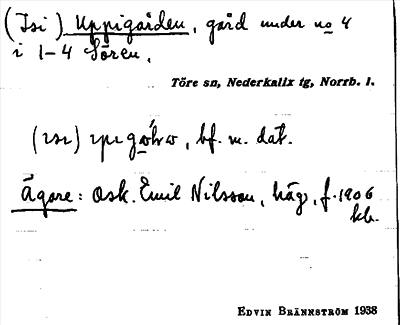 (Isi) Uppigården, gård under no 4
i 1-4 Sören.
Töre sn, Nederkalix tg, Norrb. l.
bf. m. dat.
Ägare: Osk. Emil Nilsson, häg, f. 1906
kb.
EDVIN BRÄNNSTRÖM 1938